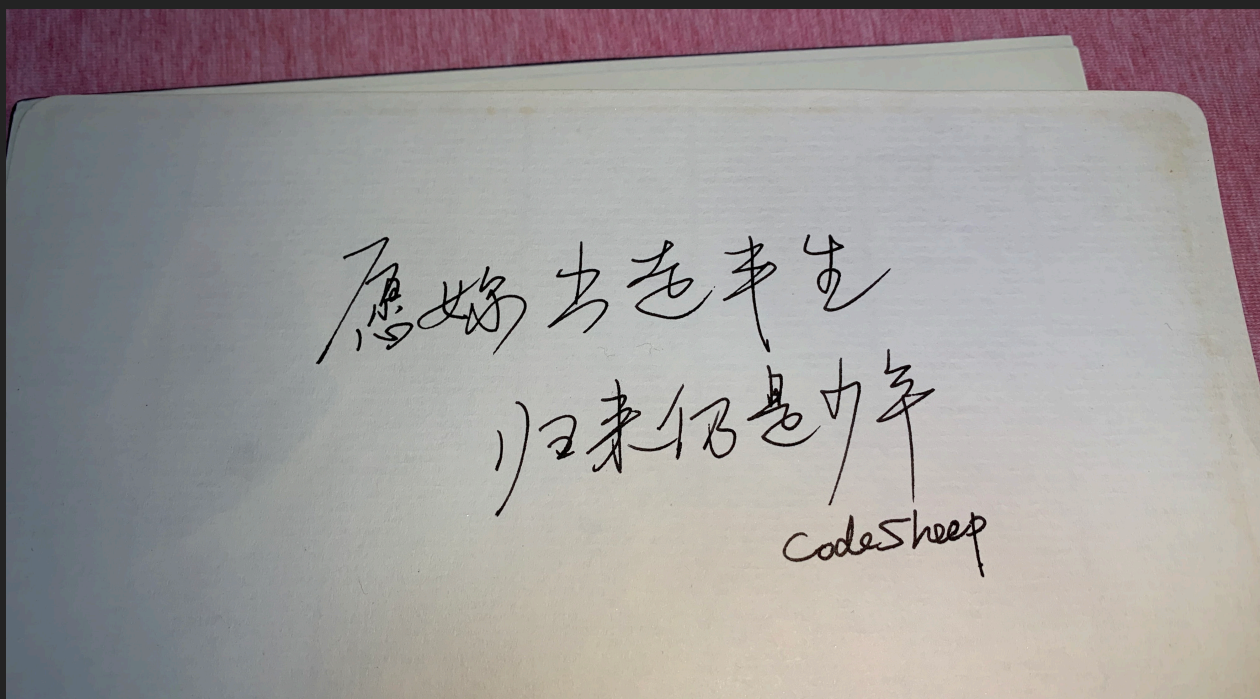 愿妳出走半生
归来仍是少年
CodeSheep